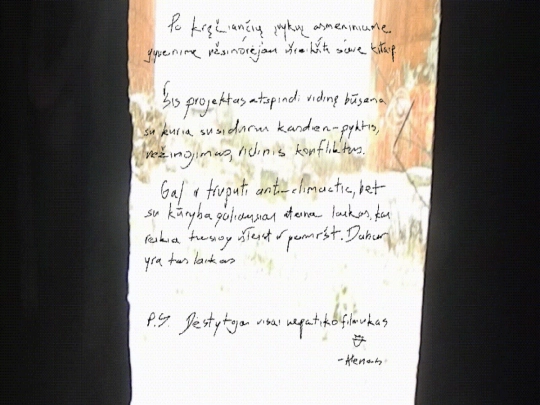 Po kręčiančių įvykių asmeniniame
gyvenime užsinorėjau išreikšti save kitaip
Šis projektas atspindi vidinę būseną
su kuria susiduriu kasdien - pyktis,
nežinojimas, vidinis konfliktas.
Gal ir truputi anti-climactic, bet
su kūryba galiausiai ateina laikas, kai
reikia tiesiog išleist ir pamiršt. Dabar
yra tas laikas
P.S. Dėstytojai visai nepatiko filmukas